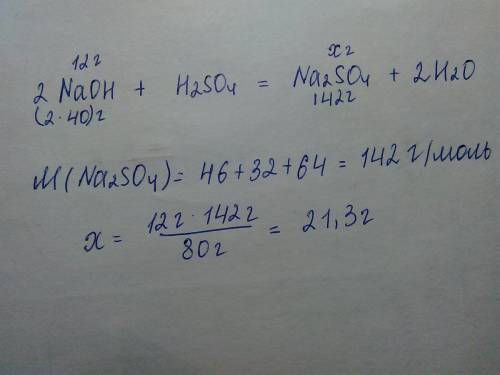 12г хг
2 NaOH + H2SO4 = Na2SO4 + 2H2O
(2·40)г 142г
M(Na2SO4) = 46+32+64 = 142 г/моль
x = 12г · 142г / 80г = 21,3г